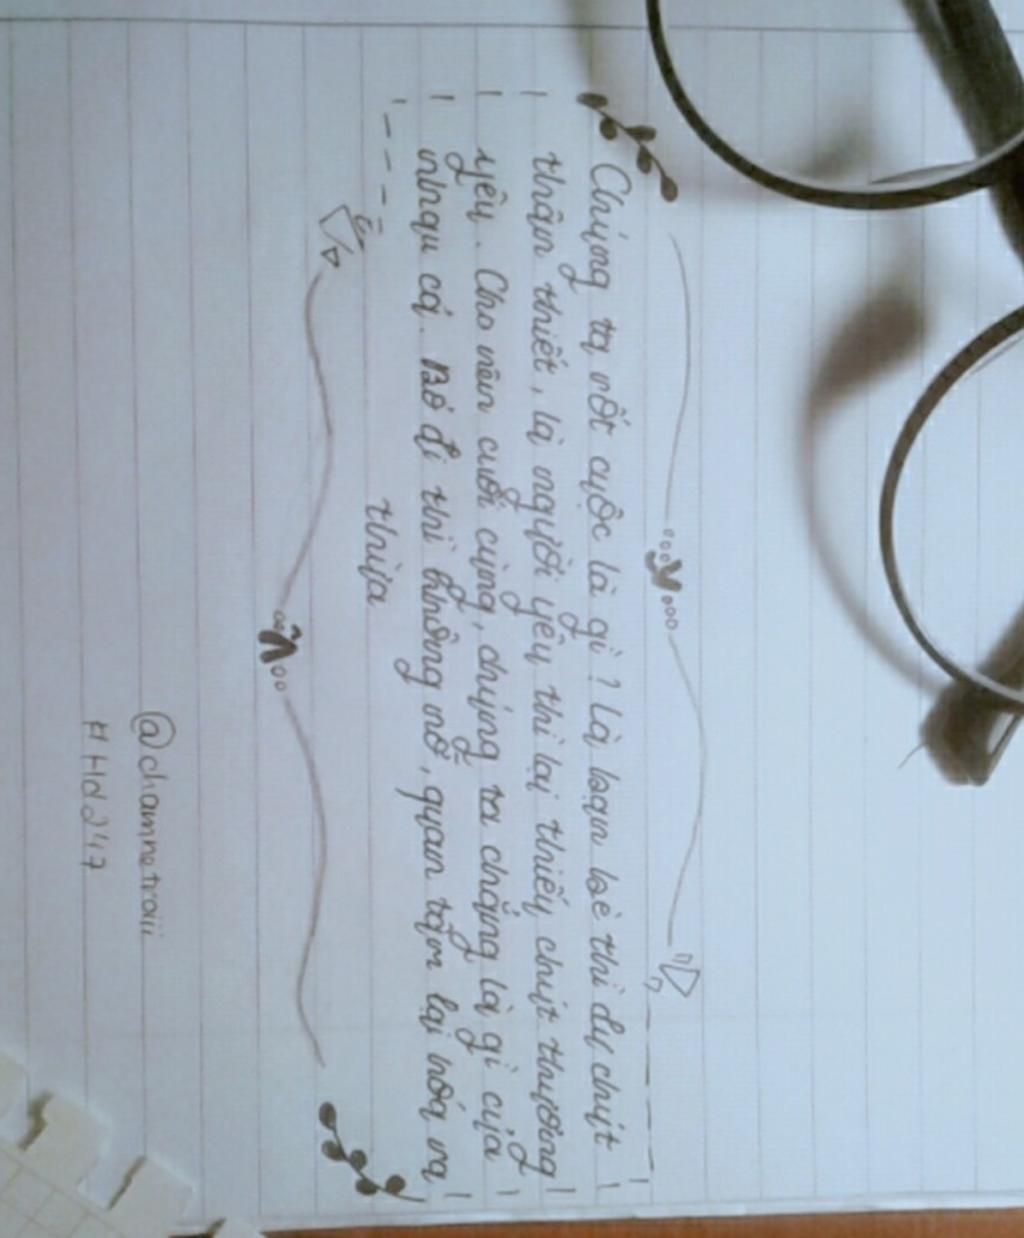 Chúng ta rốt cuộc là gì? Là bạn bè thì dư chút
thân thiết, là người yêu thì lại thiếu chút thương
yêu. Cho nên cuối cùng, chúng ta chẳng là gì của
nhau cả. Bỏ đi thì không nỡ, quan tâm lại hoá ra
thừa
@chamnetroiii
#Hd247